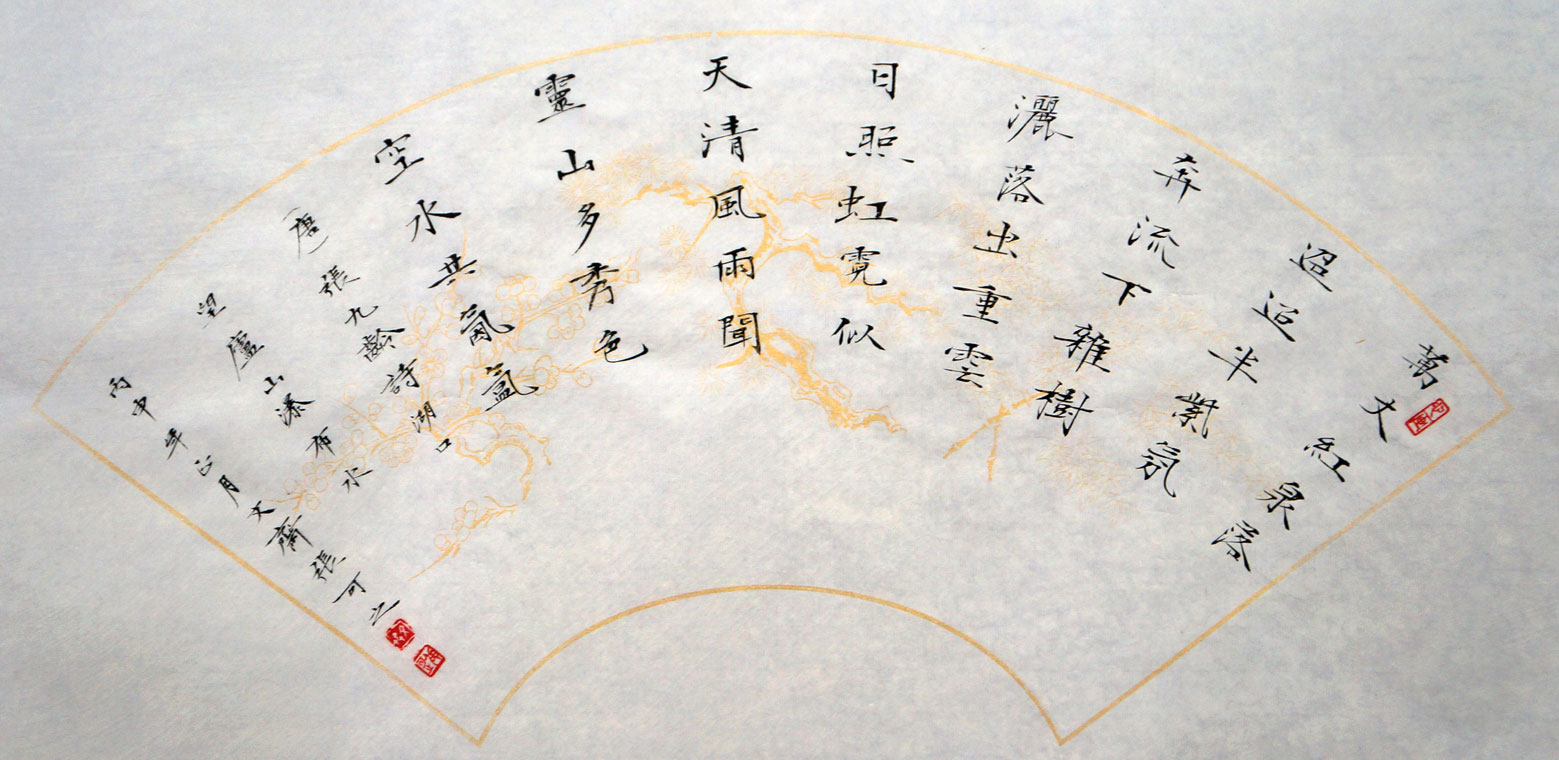 萬丈紅泉落
迢迢半紫氛
奔流下雜樹
灑落出重雲
日照虹霓似
天清風雨聞
靈山多秀色
空水共氤氳
(唐)張九齡詩湖口
望廬山瀑布水
丙申年正月文齋張可之